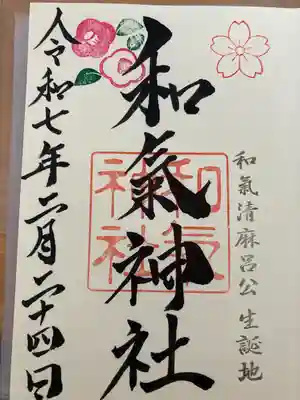 和氣清麻呂公生誕地
和氣神社
和気神社
令和七年二月二十四日